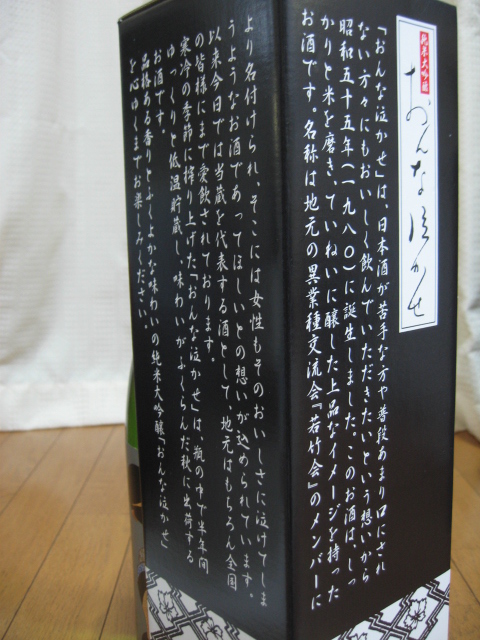 純米大吟醸
おんな泣かせ
「おんな泣かせ」は、日本酒が苦手な方や普段あまり口にされ
ない方々にもおいしく飲んでいただきたいという想いから
昭和五十五年(一九八〇)に誕生しました。このお酒は、しっ
かりと米を磨き、ていねいに醸した上品なイメージを持った
お酒です。名称は地元の異業種交流会『若竹会』のメンバーに
より名付けられ、そこには女性もそのおいしさに泣けてしま
うようなお酒であってほしいとの想いが込められています。
以来今日では当蔵を代表する酒として、地元はもちろん全国
の皆様にまで愛飲されております。
寒冷の季節に搾り上げた「おんな泣かせ」は、瓶の中で半年間
ゆっくりと低温貯蔵し、味わいがふくらんだ秋に出荷する
お酒です。
品格ある香りとふくよかな味わいの純米大吟醸「おんな泣かせ」
を心ゆくまでお楽しみください。